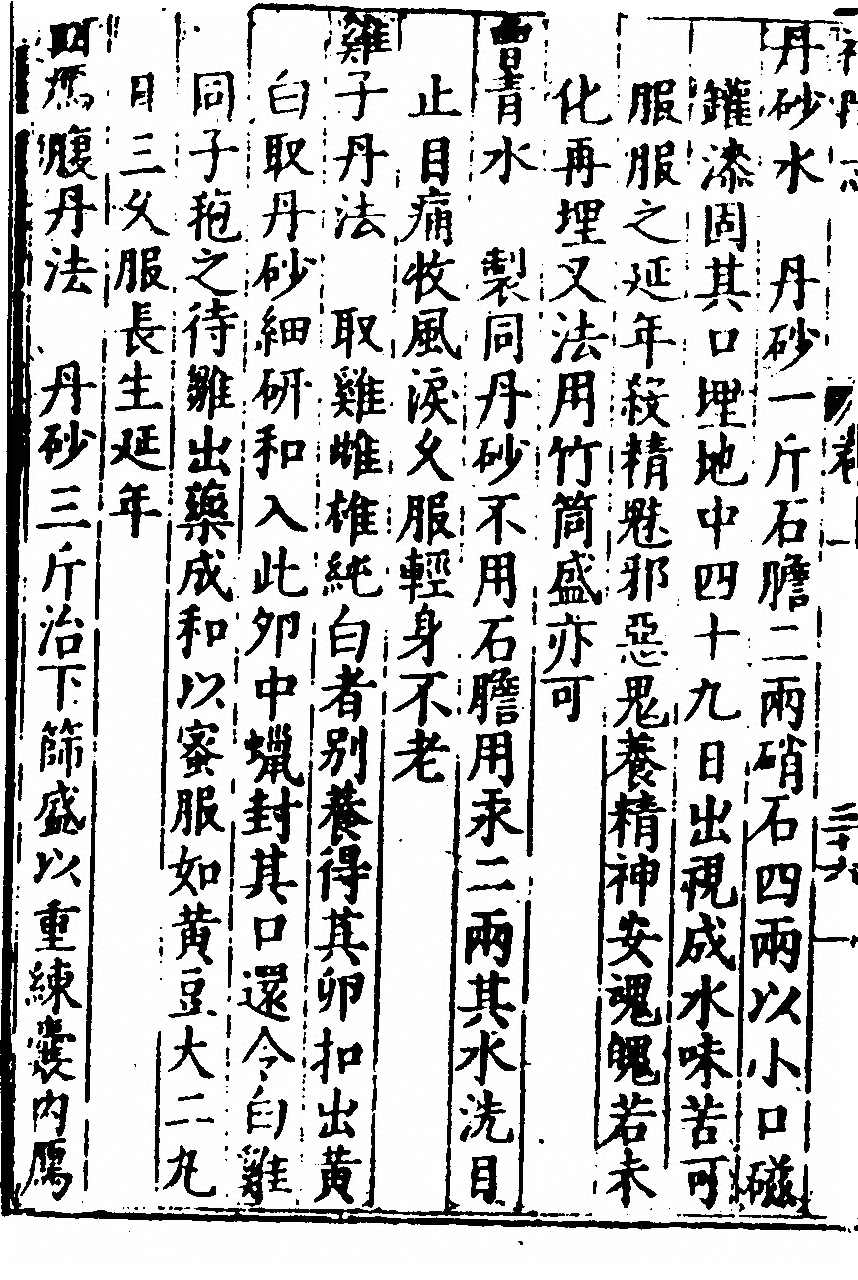 丹砂水　丹砂一斤石膽二兩硝石四兩以小口磁
罐漆固其口埋地中四十九日出視成水味苦可
服服之延年殺精魅邪惡鬼養精神安魂魄若未
化再埋又法用竹筒盛亦可
曾青水　製同丹砂不用石膽用汞二兩其水洗目
止目痛收風淚久服輕身不老
雞子丹法　取雞雌雄純白者别養得其卵扣出黄
白取丹砂細研和入此卵中蠟封其口還令白雞
同子菢之待雛出藥成和以蜜服如黄豆大二丸
日三久服長生延年
腹丹法　丹砂三斤治下篩盛以重練囊内鴈